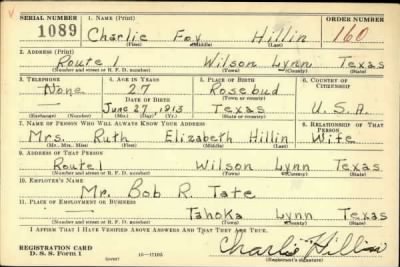 SERIAL NUMBER 1. NAME (Print) ORDER NUMBER
1089 Charlie Foy Hillin 160
(First) (Middle) (Last)
2. ADDRESS (Print)
Route 1 Wilson Lynn Texas
(Number and street or R. F. D. number) (Town) (County) (State)
3. TELEPHONE 4. AGE IN YEARS 5. PLACE OF BIRTH 6. COUNTRY OF CITIZENSHIP
None 27 Rosebud
DATE OF BIRTH (Town or county)
June 27, 1913 Texas U.S.A.
(Exchange) (Number) (Mo.) (Day) (Yr.) (State or country)
7. NAME OF PERSON WHO WILL ALWAYS KNOW YOUR ADDRESS 8. RELATIONSHIP OF THAT PERSON
Mrs. Ruth Elizabeth Hillin Wife
(Mr., Mrs., Miss) (First) (Middle) (Last)
9. ADDRESS OF THAT PERSON
Route 1 Wilson Lynn Texas
(Number and street or R. F. D. number) (Town) (County) (State)
10. EMPLOYER'S NAME
Mr. Bob R. Tate
11. PLACE OF EMPLOYMENT OR BUSINESS
Tahoka Lynn Texas
(Number and street or R. F. D. number) (Town) (County) (State)
I AFFIRM THAT I HAVE VERIFIED ABOVE ANSWERS AND THAT THEY ARE TRUE.
REGISTRATION CARD
D. S. S. Form 1 16—17105 Charlie Hillin
(Registrant's signature)